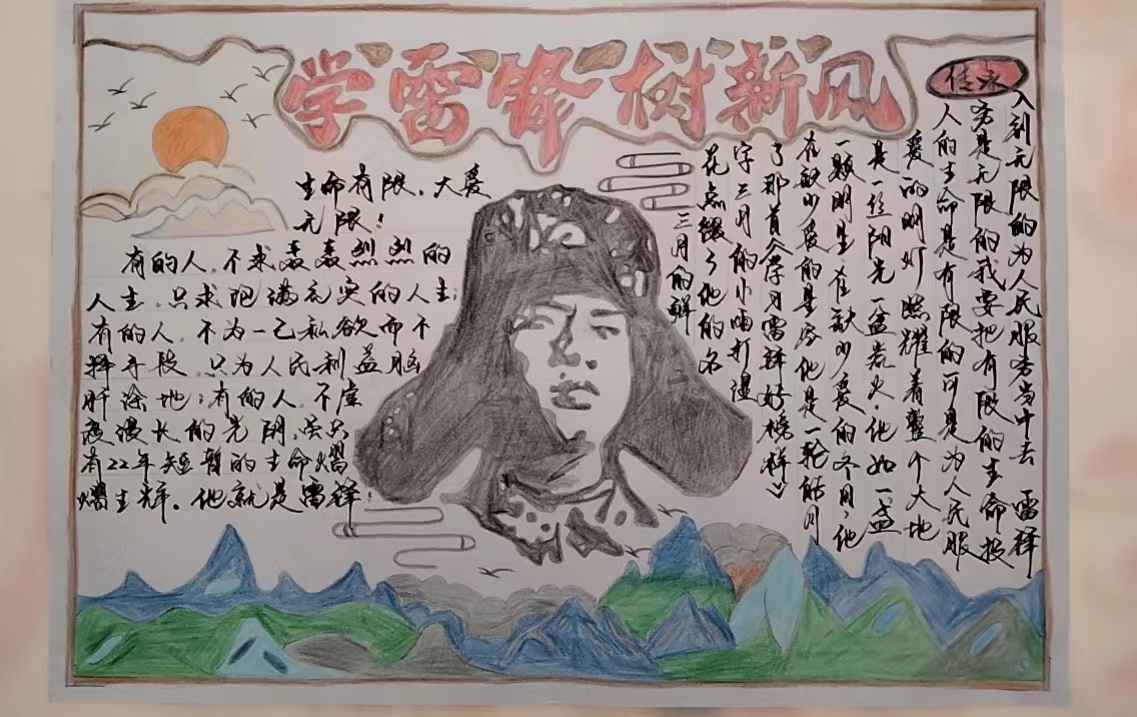 学雷锋树新风
生命有限，大爱
无限！
有的人，不求轰轰烈烈的
人生，只求饱满充实的人生；
有的人，不为一己私欲而不
择手段，只为人民利益脑
肝涂地；有的人，不虚
度漫长的光阴，虽只
有22年短暂的生命熠
熠生辉。他就是雷锋！
三月的鲜
花点缀了他的名
字三月的小雨打湿
了那首《学习雷锋好榜样》
在缺少爱的黑夜他是一轮皓月
一颗明星，在缺少爱的冬日，他
是一丝阳光一盆炭火．他如一盏
爱的明灯照耀着整个大地
人的生命是有限的可是为人民服
务是无限的我要把有限的生命投
入到无限的为人民服务当中去 雷锋